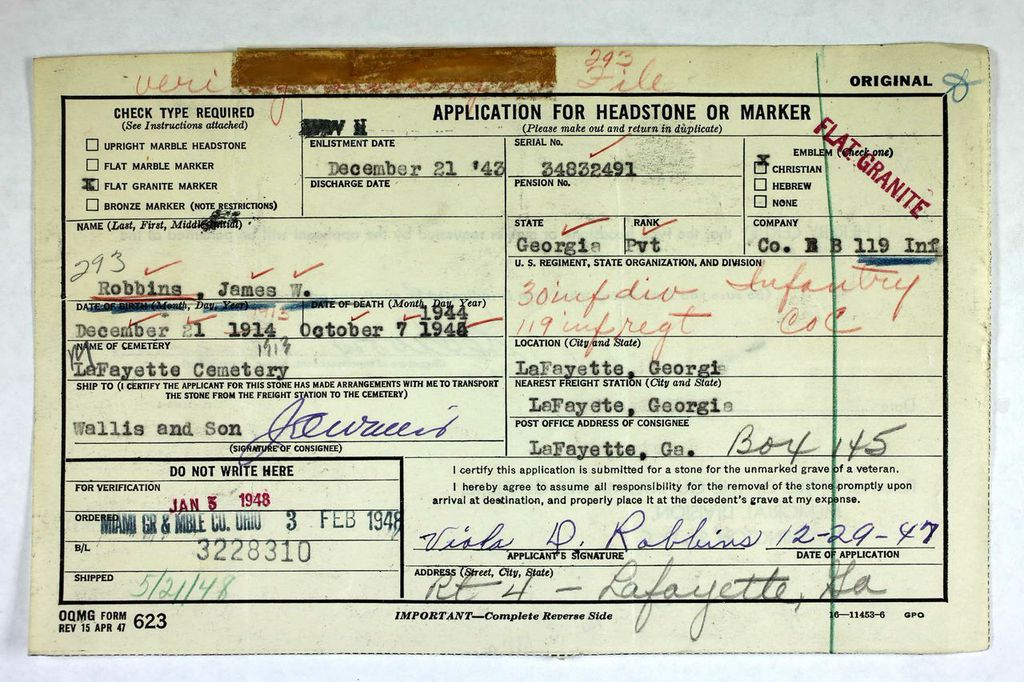 293
veri File
ORIGINAL
CHECK TYPE REQUIRED
(See Instructions attached)
UPRIGHT MARBLE HEADSTONE
FLAT MARBLE MARKER
X FLAT GRANITE MARKER
BRONZE MARKER (NOTE RESTRICTIONS)
APPLICATION FOR HEADSTONE OR MARKER
(Please make out and return in duplicate)
WW II
ENLISTMENT DATE
December 21 '43
DISCHARGE DATE
SERIAL No.
34832491
PENSION No.
EMBLEM (Check one)
X CHRISTIAN
HEBREW
NONE
FLAT GRANITE
NAME (Last, First, Middle Initial)
293
Robbins , James W.
STATE
Georgia
RANK
Pvt
COMPANY
Co. B 119 Inf
U. S. REGIMENT, STATE ORGANIZATION, AND DIVISION
30 inf div Infantry
119 inf regt Co C
DATE OF BIRTH (Month, Day, Year)
1913
December 21 1914
1913
DATE OF DEATH (Month, Day, Year)
1944
October 7
NAME OF CEMETERY
LaFayette Cemetery
LOCATION (City and State)
LaFayette, Georgi
SHIP TO (I CERTIFY THE APPLICANT FOR THIS STONE HAS MADE ARRANGEMENTS WITH ME TO TRANSPORT
THE STONE FROM THE FREIGHT STATION TO THE CEMETERY)
Wallis and Son
(SIGNATURE OF CONSIGNEE)
NEAREST FREIGHT STATION (City and State)
LaFayete, Georgia
POST OFFICE ADDRESS OF CONSIGNEE
LaFayette, Ga. Box 145
DO NOT WRITE HERE
FOR VERIFICATION
JAN 5 1948
ORDERED
MIAMI GR & MBLE CO. OHIO 3 FEB 1948
B/L
3228310
SHIPPED
5/21/48
I certify this application is submitted for a stone for the unmarked grave of a veteran.
I hereby agree to assume all responsibility for the removal of the stone promptly upon
arrival at destination, and properly place it at the decedent's grave at my expense.
Viola D. Robbins 12-29-47
APPLICANT'S SIGNATURE DATE OF APPLICATION
ADDRESS (Street, City, State)
Rt 4 - Lafayette, Ga
OQMG FORM 623
REV 15 APR 47
IMPORTANT—Complete Reverse Side
16—11453-6 GPO